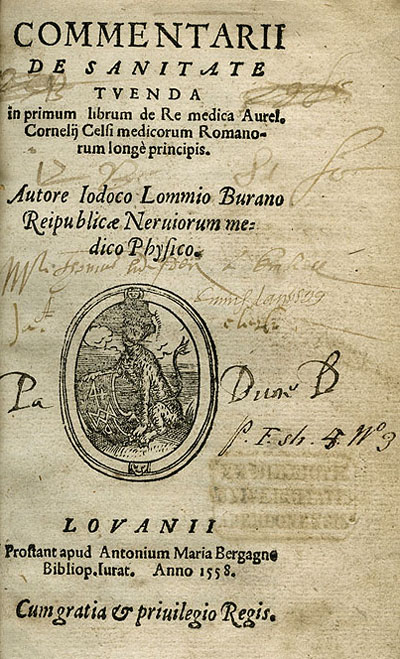 COMMENTARII
DE SANITATE
TVENDA
in primum librum de Re medica Aurel.
Cornelij Celsi medicorum Romano-
rum longè principis.
Autore Iodoco Lommio Burano
Reipublicæ Neruiorum me-
dico Physico.
Pa Duore B
P. F. sh. 4. Nº 3
LOVANII
Prostant apud Antonium Maria Bergagne
Bibliop. Iurat. Anno 1558.
Cum gratia & priuilegio Regis.